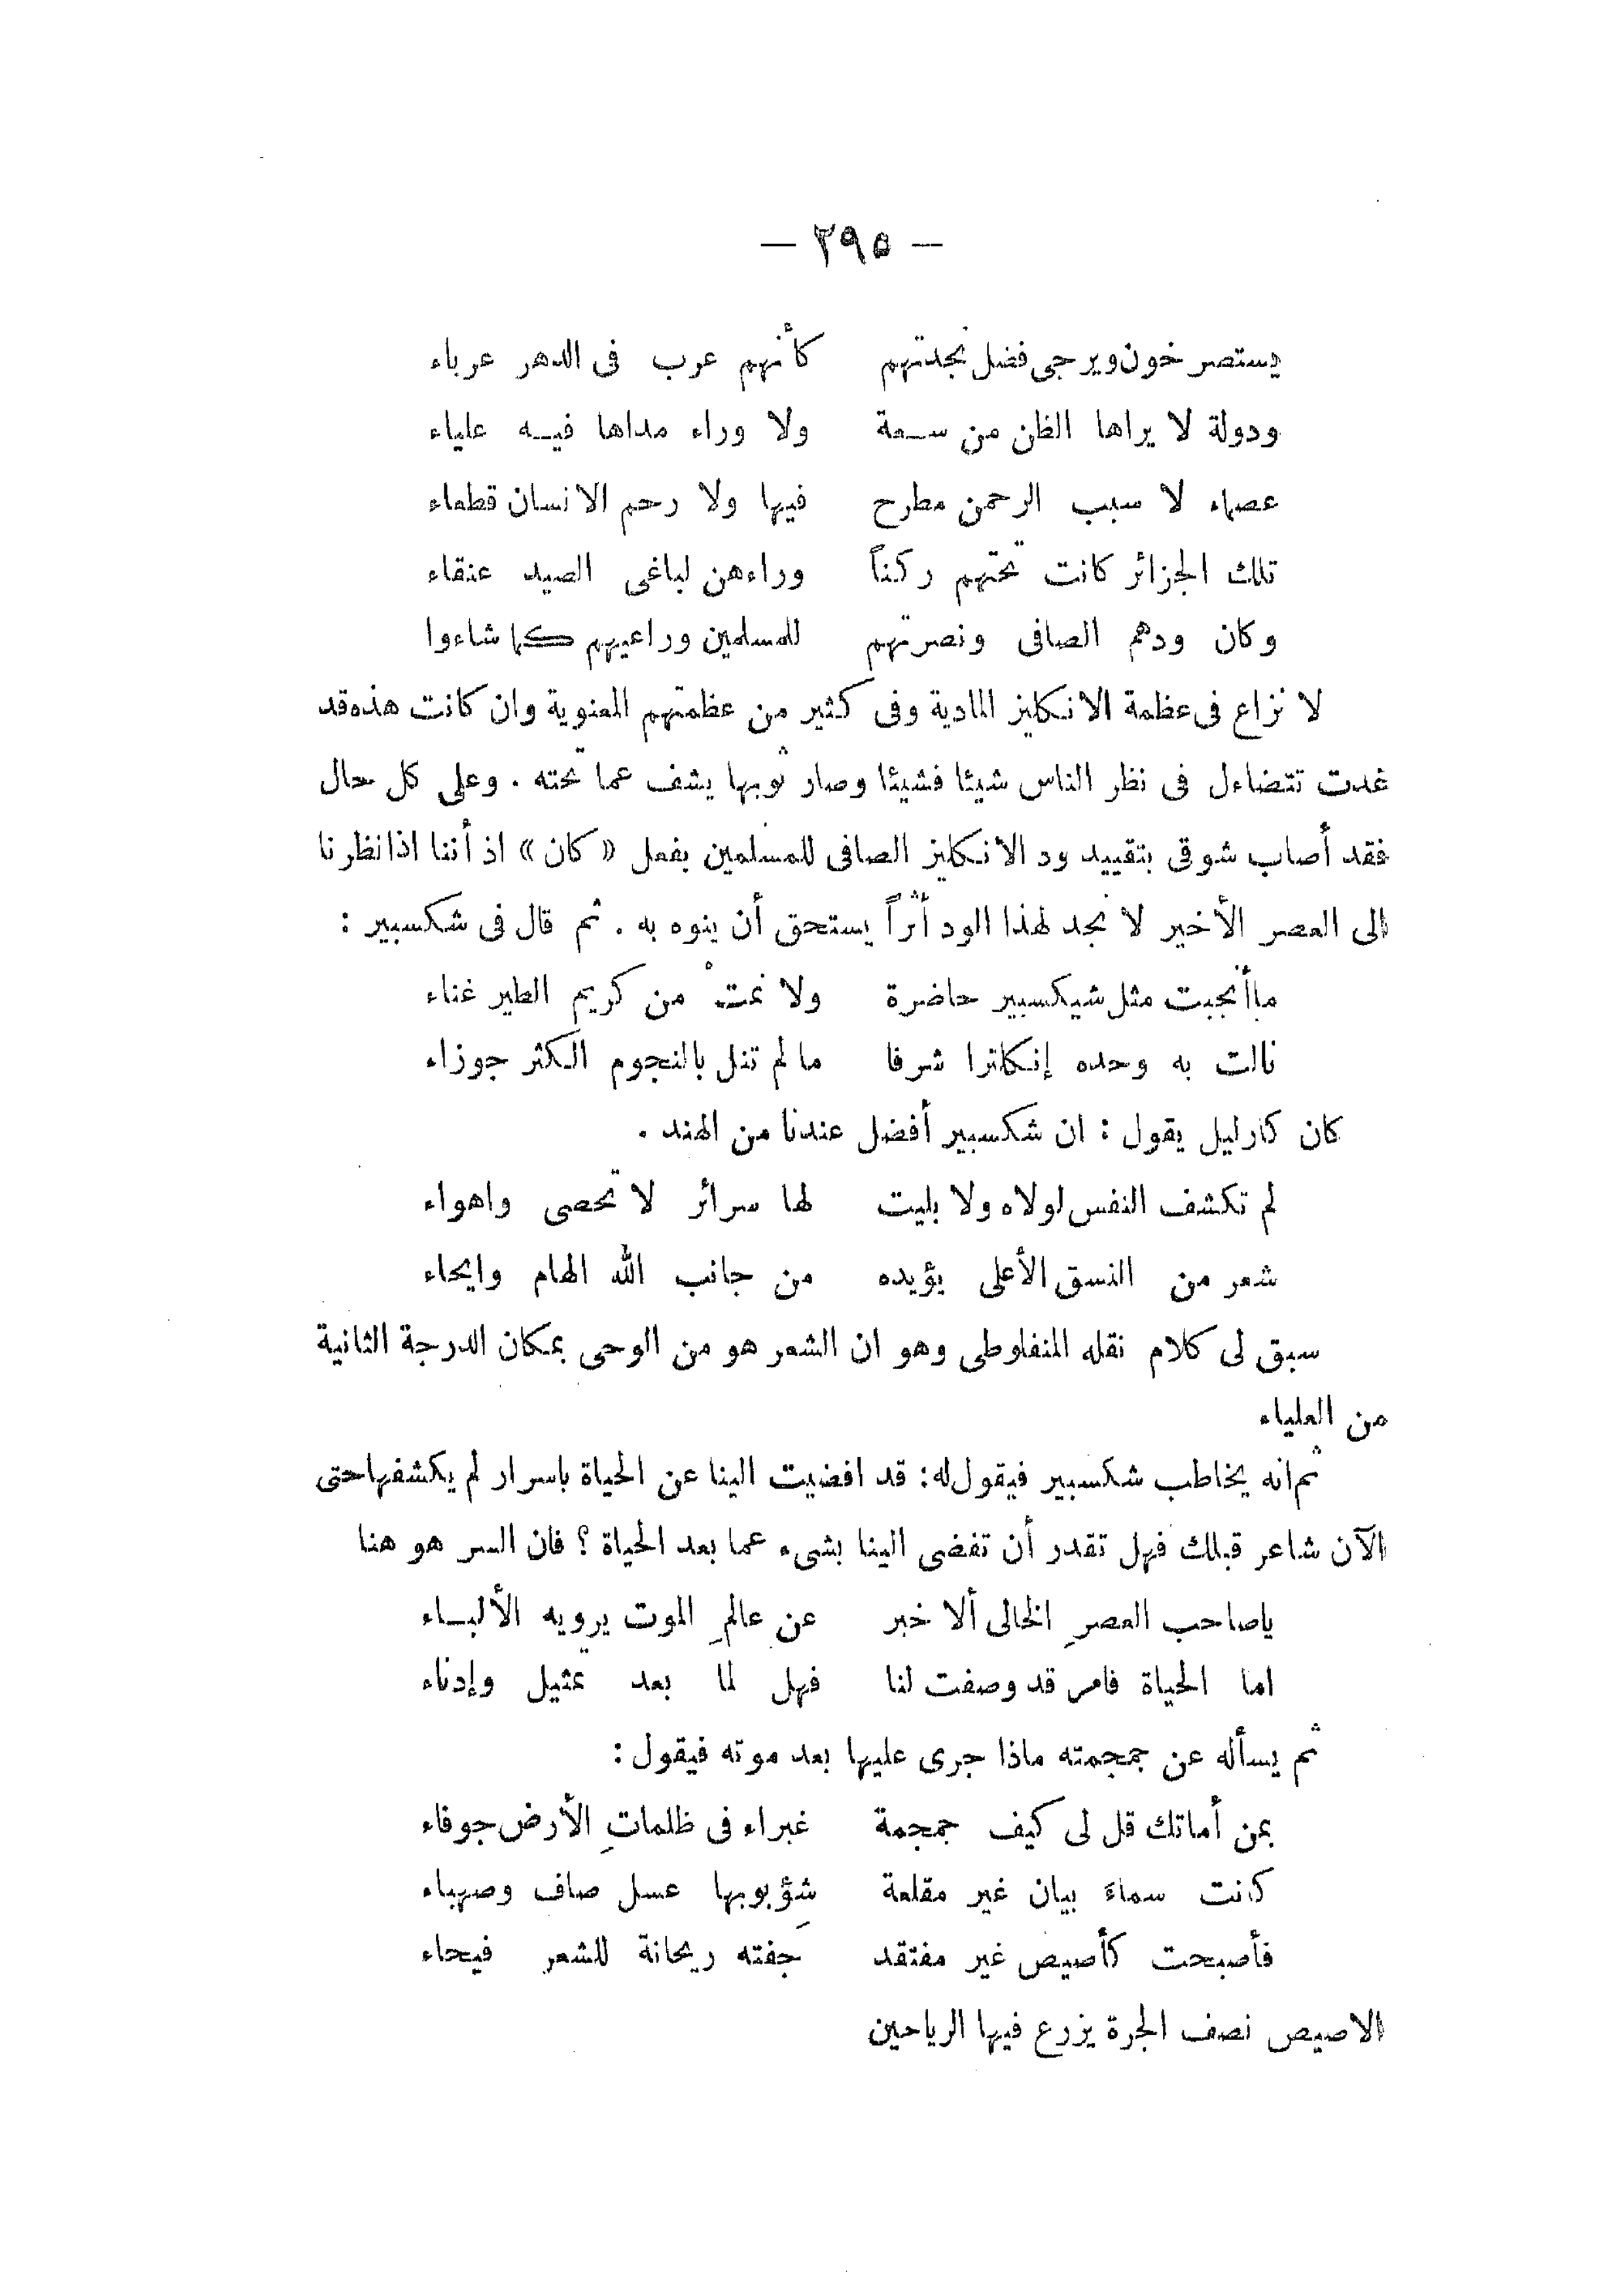 — ٢٩٥ —
يستصرخون ويرجى فضل نجدتهم كأنهم عرب فى الدهر عرباء
ودولة لا يراها الظن من سـعة ولا وراء مداها فيـه علياء
عصماء لا سبب الرحمن مطرح فيها ولا رحم الانسان قطعاء
تلك الجزائر كانت تحتهم ركناً وراءهن لباغى الصيد عنقاء
وكان ودهم الصافى ونصرتهم للمسلمين وراعيهم كما شاءوا
لا نزاع فى عظمة الانكليز المادية وفى كثير من عظمتهم المعنوية وان كانت هذه قد
غدت تتضاءل فى نظر الناس شيئا فشيئا وصار ثوبها يشف عما تحته . وعلى كل حال
فقد أصاب شوقى بتقييد ود الانكليز الصافى للمسلمين بفعل « كان » اذ أننا اذا نظرنا
الى العصر الأخير لا نجد لهذا الود أثراً يستحق أن ينوه به . ثم قال فى شكسبير :
ما أنجبت مثل شيكسبير حاضرة ولا نمتْ من كريم الطير غناء
نالت به وحده إنكلترا شرفا ما لم تنل بالنجوم الكثر جوزاء
كان كارليل يقول : ان شكسبير أفضل عندنا من الهند .
لم تكشف النفس لولاه ولا بليت لها سرائر لا تحصى واهواء
شعر من النسق الأعلى يؤيده من جانب الله الهام وايحاء
سبق لى كلام نقله المنفلوطى وهو ان الشعر هو من الوحى بمكان الدرجة الثانية
من العلياء
ثم انه يخاطب شكسبير فيقول له : قد افضيت الينا عن الحياة باسرار لم يكشفها حتى
الآن شاعر قبلك فهل تقدر أن تفضى الينا بشىء عما بعد الحياة ؟ فان السر هو هنا
ياصاحب العصرِ الخالى ألا خبر عن عالمِ الموت يرويه الألبـاء
اما الحياة فامر قد وصفت لنا فهل لما بعد تمثيل وإدناء
ثم يسأله عن جمجمته ماذا جرى عليها بعد موته فيقول :
بمن أماتك قل لى كيف جمجمة غبراء فى ظلماتِ الأرض جوفاء
كانت سماءَ بيان غير مقلعة شؤبوبها عسل صاف وصهباء
فأصبحت كأصيص غير مفتقد جفته ريحانة للشعر فيحاء
الاصيص نصف الجرة يزرع فيها الرياحين